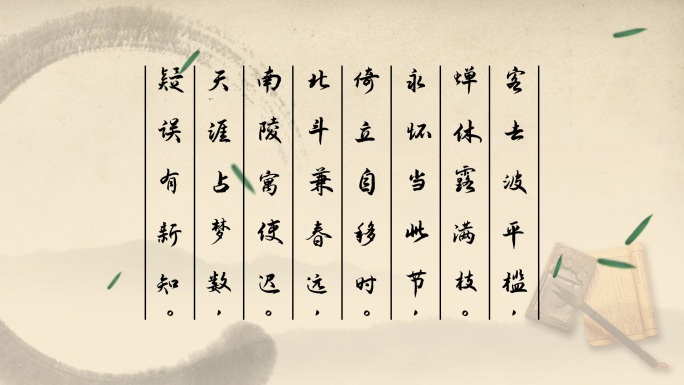 客去波平槛，
蝉休露满枝。
永怀当此节，
倚立自移时。
北斗兼春远，
南陵寓使迟。
天涯占梦数，
疑误有新知。